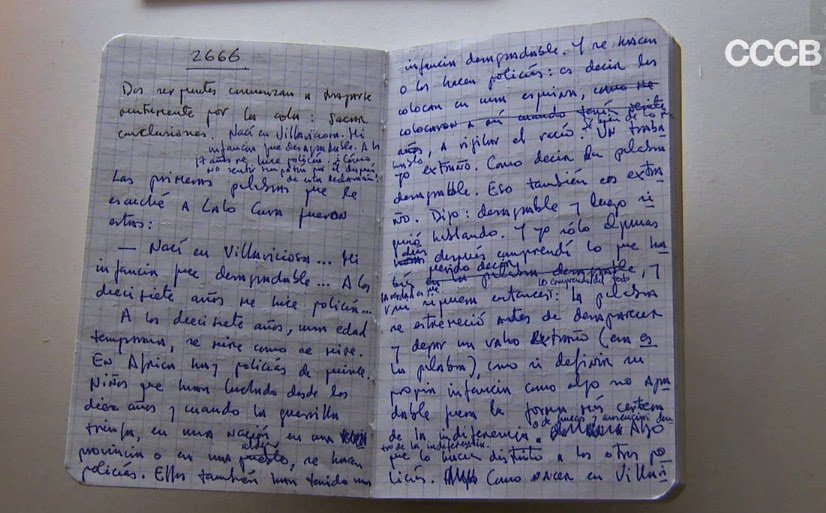 2666
Dos serpientes comienzan a
por la cola: sacar
conclusiones. Nací en Villaviciosa. Mi
infancia fue desagradable. A los
17 años me hice policía. ¿Cómo
no sentir simpatía por él después
de esta declaración?
Las primeras palabras que le
escuché a Lalo Cura fueron
estas:
— Nací en Villaviciosa... Mi
infancia fue desagradable... A los
diecisiete años me hice policía...
A los diecisiete años, una edad
temprana, se vive como se vive.
En África hay policías de quince.
Niños que han luchado desde los
diez años y cuando la guerrilla
triunfa, en una nación, en una
provincia o en una aldea, se hacen
policías. Ellos también han tenido una
infancia desagradable. Y se hacen
o los hacen policías: es decir los
colocan en una esquina, como me
colocaron a mí cuando tenía
años, a vigilar el vacío. Un traba
jo extraño. Como decir la palabra
desagradable. Eso también es extra
ño. Dijo: desagradable y luego si
guió hablando. Y yo sólo algunas
después comprendí lo que ha
bía querido decir
en la palabra desagradable, y
lo comprendí del todo
la palabra
se estremeció antes de desaparecer
y dejar un vaho extraño (era es
la palabra), como si definir su
propia infancia como algo no agra
dable fuera la forma más certera
de la indiferencia, o de juegos y ausencias den
tro de la indiferencia. Algo
que lo hacía distinto a los otros po
licías. Como nacer en Villavi
CCCB